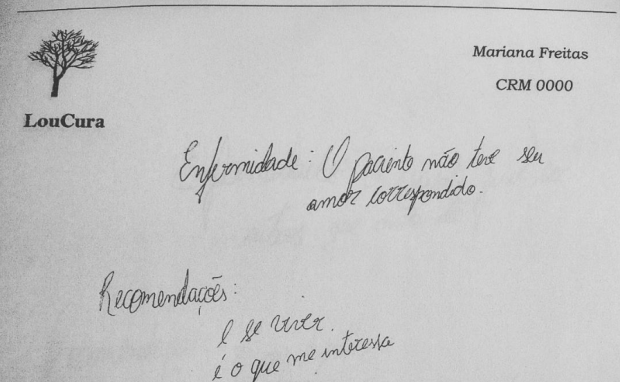 Mariana Freitas
CRM 0000
LouCura
Enfermidade: O paciente não teve seu
amor correspondido.
Recomendações:
e se viver.
é o que me interessa